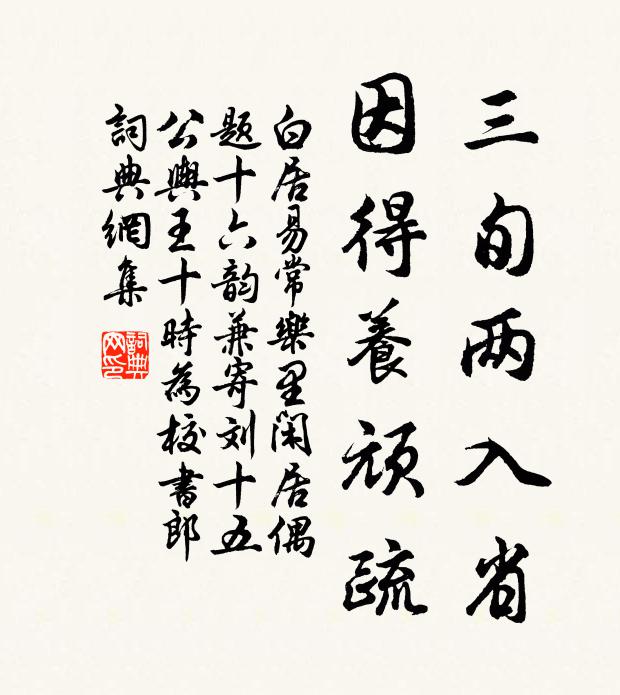 三旬两入省
因得養頑疏
白居易常樂里閑居偶
題十六韵兼寄刘十五
公輿王十時為校書郎
詞典網集
詞典网印